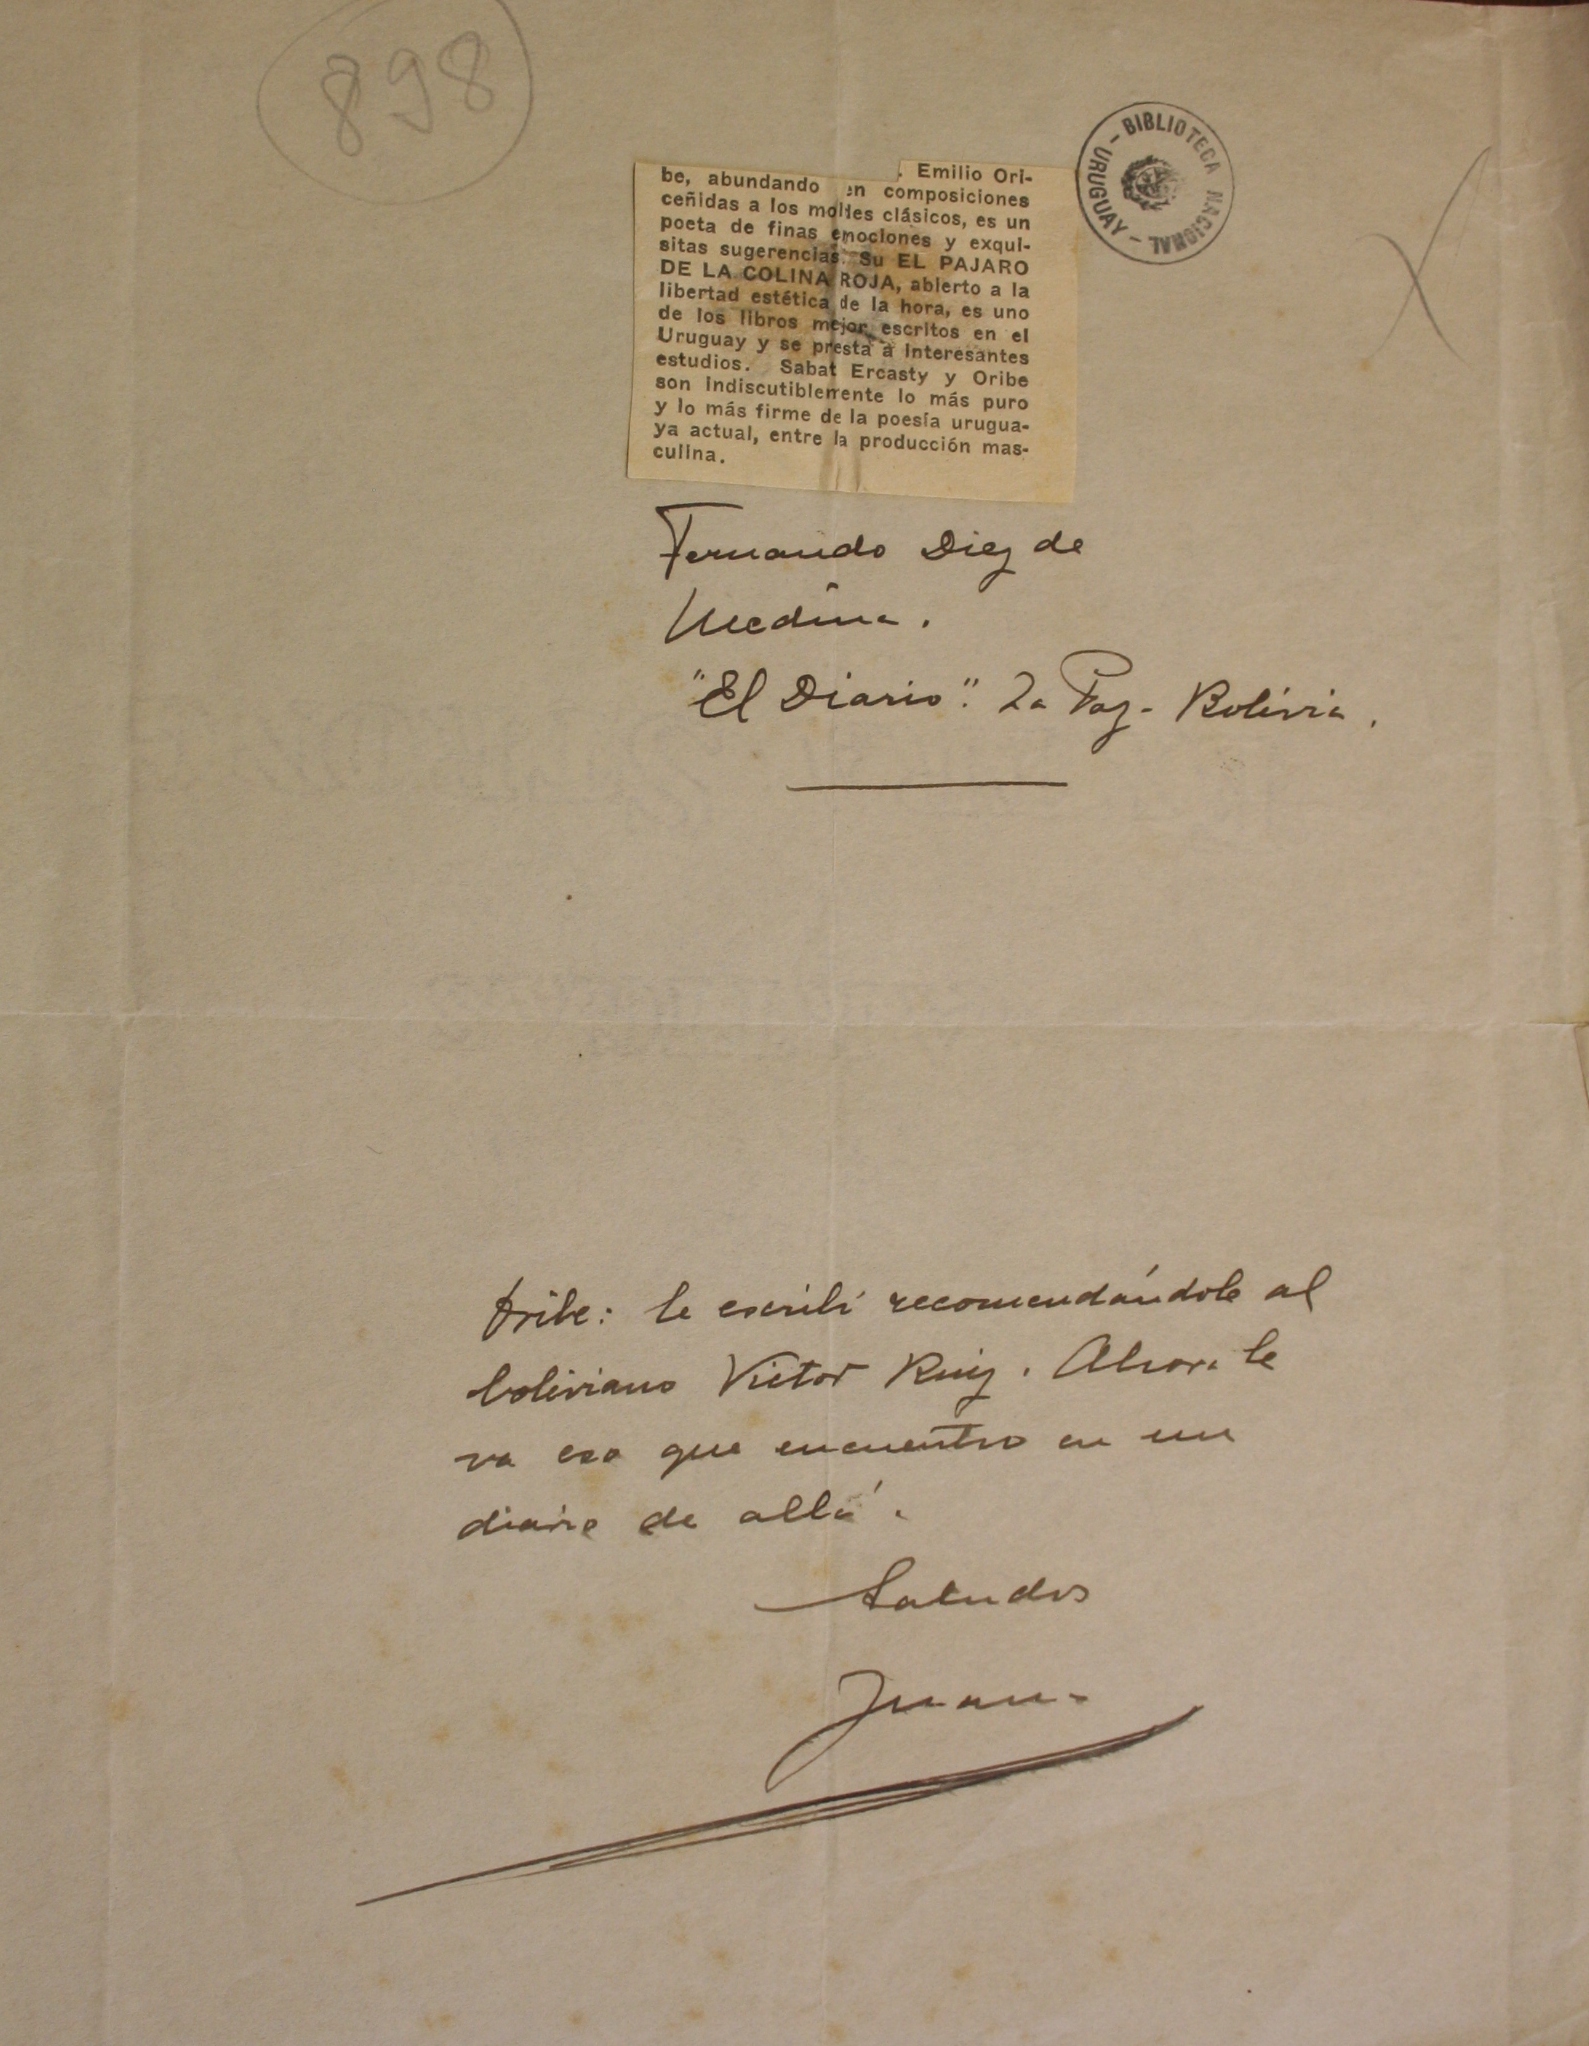 898
BIBLIOTECA NACIONAL - URUGUAY -
. Emilio Ori-
be, abundando en composiciones
ceñidas a los moldes clásicos, es un
poeta de finas emociones y exqui-
sitas sugerencias. Su EL PAJARO
DE LA COLINA ROJA, abierto a la
libertad estética de la hora, es uno
de los libros mejor escritos en el
Uruguay y se presta a interesantes
estudios. Sabat Ercasty y Oribe
son indiscutiblemente lo más puro
y lo más firme de la poesía urugua-
ya actual, entre la producción mas-
culina.
Fernando Diez de
Medina.
"El Diario". La Paz - Bolivia.
Oribe: le escribí recomendándole al
boliviano Victor Ruiz. Ahora le
va eso que encuentro en un
diario de allá.
Saludos
Juan.